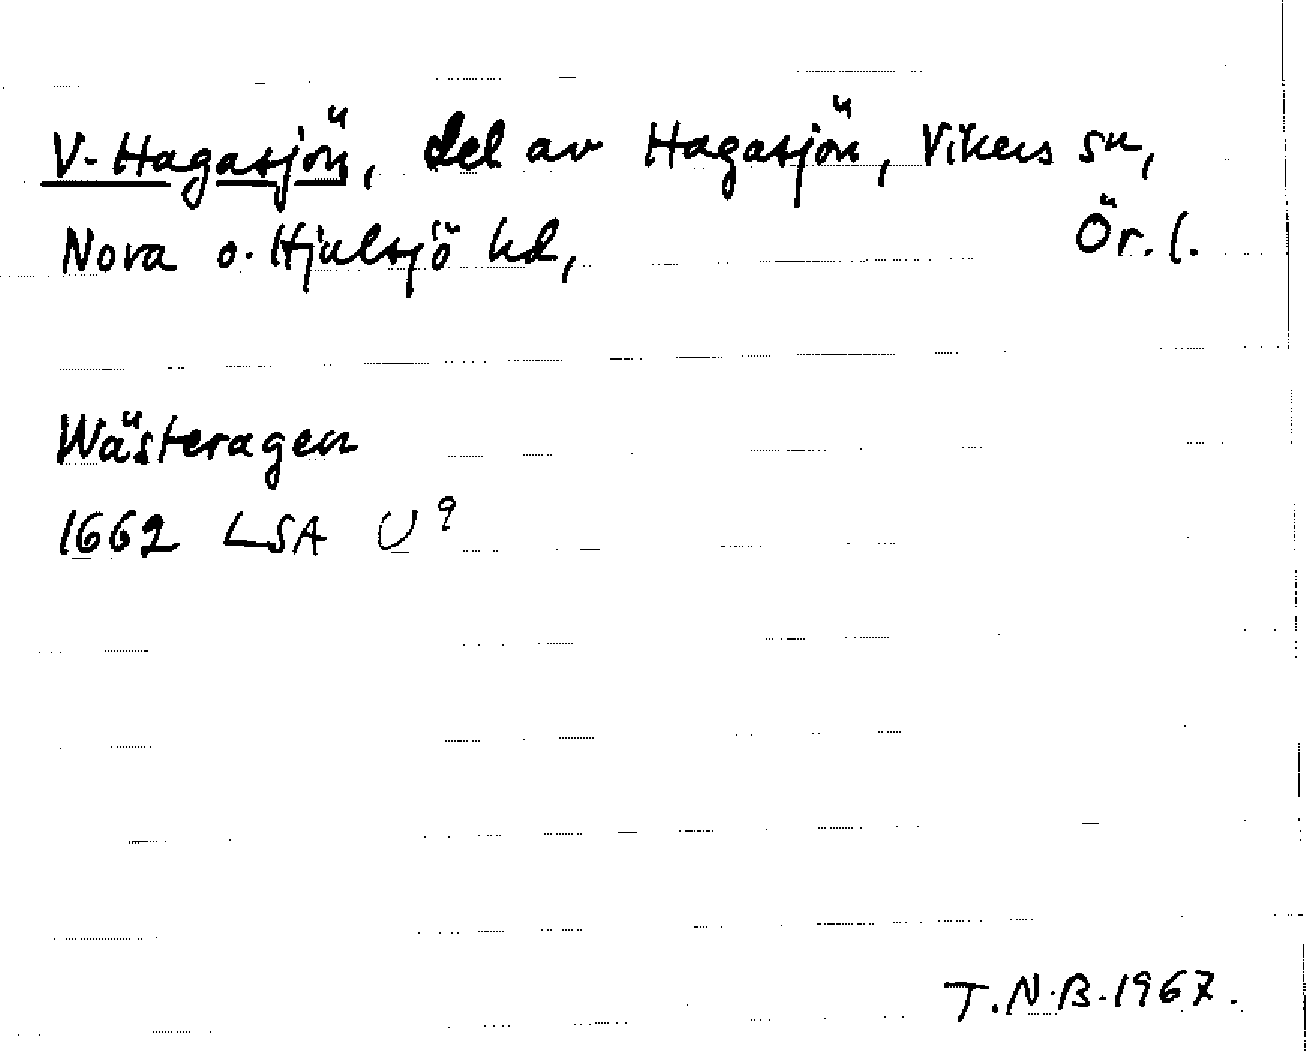 V. Hagasjön, del av Hagasjön, Vikers sn,
Nora o. Hjulsjö hd, Ör. l.
Wästeragen
1662 LSA U⁹
T.N.B. 1967.